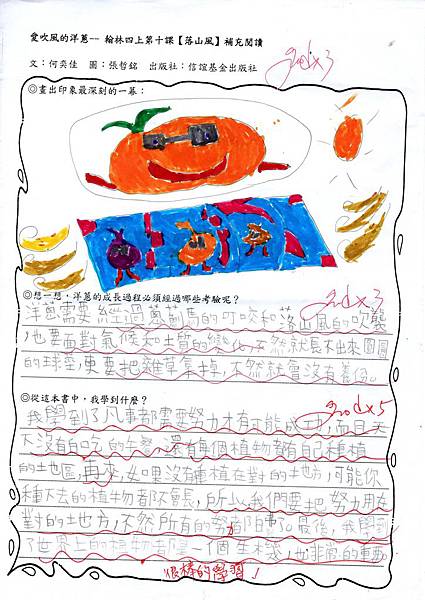 愛吹風的洋蔥-- 翰林四上第十課【落山風】補充閱讀
文：何奕佳 圖：張哲銘 出版社：信誼基金出版社
goodx3
◎畫出印象最深刻的一幕：
◎想一想，洋蔥的成長過程必須經過哪些考驗呢？
goodx3
洋蔥需要經過蔥薊馬的叮咬和落山風的吹襲
，也要面對氣候和土質的變化，不然就長不出圓圓
的球莖，更要把雜草拿掉，不然就會沒有養份。
◎從這本書中，我學到什麼？
goodx5
我學到了凡事都需要努力才有可能成功，而且天
下沒有白吃的午餐，還有每個植物都有自己種植
的土地區，再來，如果沒有種植在對的地方，可能你
種下去的植物都不會長，所以，我們要把努力用在
對的地方，不然所有的努力都白費了。最後，我學到
了世界上的植物都是一個生木態，也非常的重要。
很棒的學習！